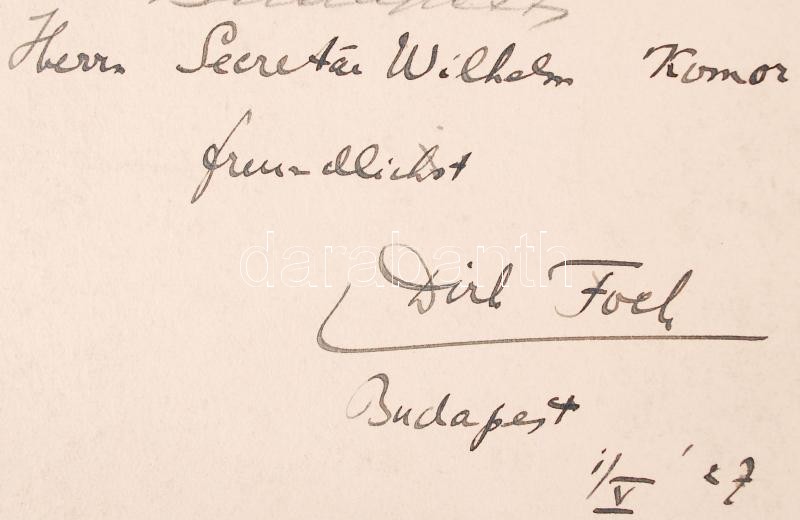 Budapest
Herrn Secretär Wilhelm Komor
freundlichst
darabanth
Dirk Foch
Budapest
1/V '27